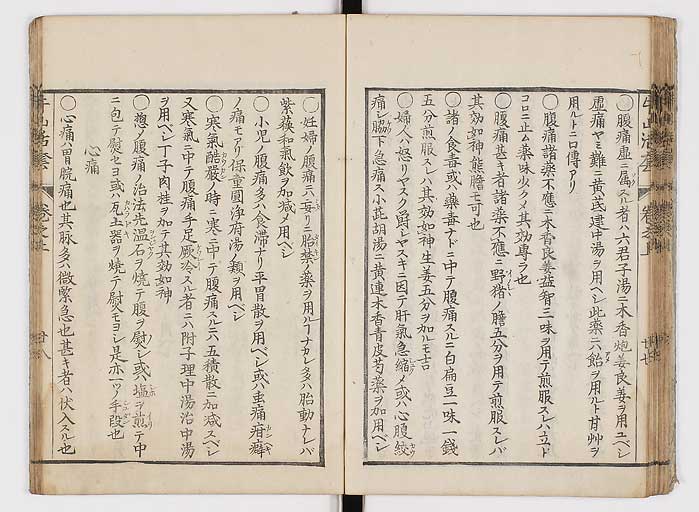 ○腹痛虚ニ属スル者ハ六君子湯ニ木香炮姜良姜ヲ用ユベシ
虚痛ヤミ難ニ黄芪建中湯ヲ用ベシ此薬ニハ飴ヲ用ルト甘艸ヲ
用ルトニ口傳アリ
○腹痛諸薬不應ニ木香良姜益智三味ヲ用テ煎服スレハ立トコロニ
コロニ止ム薬味少クメ其効專ラ也
○腹痛甚キ者諸薬不應ニ野猪ノ膽五分ヲ用テ煎服スレバ
其効如神熊膽モ可也
○諸ノ食毒或ハ藥毒ナドニ中テ腹痛スルニハ白扁豆一味一錢
五分煎服スレハ其効如神生姜五分ヲ加ルモ吉
○婦人ハ怒リヤスク欝シヤスキニ因テ肝氣急縮メ或ハ心腹絞
痛シ脇下急痛ス小茈胡湯ニ黄連木香青皮芍薬ヲ加用ベシ
牛山活套 卷之上 廿七
○妊婦ノ腹痛ニハ妄リニ胎禁ノ薬ヲ用ルヿナカレ多ハ胎動ナレバ
紫蘓和氣飲ヲ加減メ用ベシ
○小児ノ腹痛多ハ食滞ナリ平胃散ヲ用ベシ或ハ虫痛疳癖
ノ痛モアリ保童圓浄府湯ノ類ヲ用ベシ
○寒氣酷發ノ時ニ寒ニ中テ腹痛スルニハ五積散ニ加減スベシ
又寒氣ニ中テ腹痛手足厥冷スル者ニハ附子理中湯治中湯
ヲ用ベシ丁子肉桂ヲ加テ其効如神
○惣ノ腹痛ノ治法先温石ヲ燒テ腹ヲ熨ベシ或ハ塩ヲ煎テ巾
ニ包テ熨セヨ或ハ瓦土器ヲ燒テ熨スモヨシ是亦一ツノ手段也
心痛
○心痛ハ胃脘痛也其脉多ハ微緊急也甚キ者ハ伏入スル也
牛山活套 卷之上 廿八